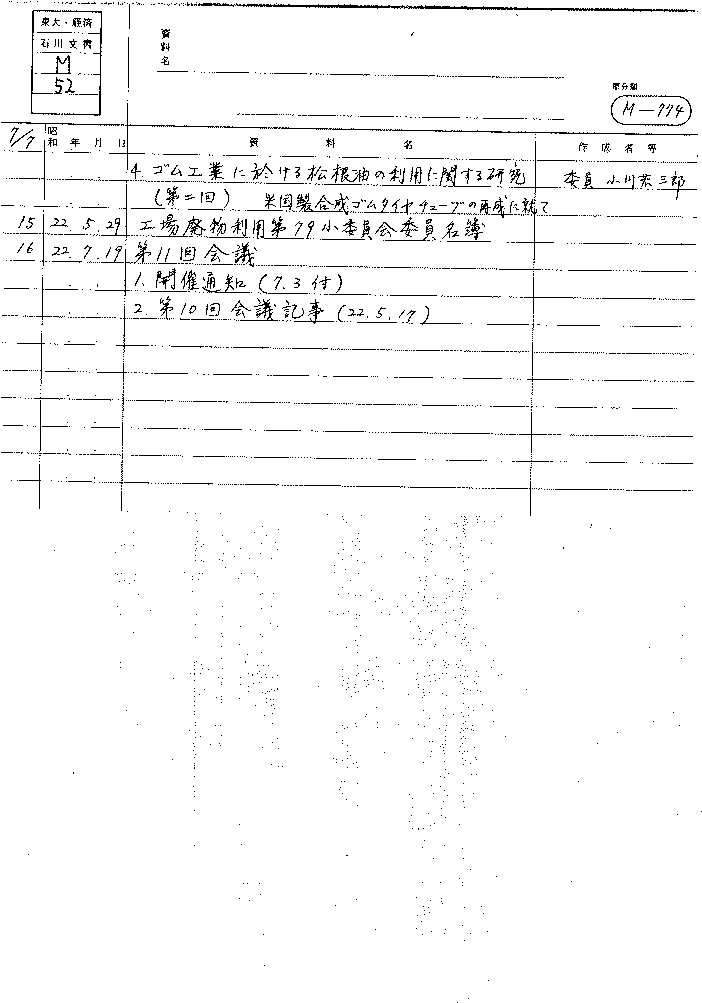 東大・経済
石川文書
M
52
資料名
原分類
M-774
7/7
昭和 年 月 日
資 料 名
作 成 者 等
4. ゴム工業に於ける松根油の利用に関する研究
委員 小川 三郎
(第二回) 米国製合成ゴムタイヤチューブの再成に就て
15 22.5.29 工場廃物利用第79小委員会委員名簿
16 22.7.19 第11回会議
1. 開催通知 (7.3付)
2. 第10回会議記事 (22.5.17)